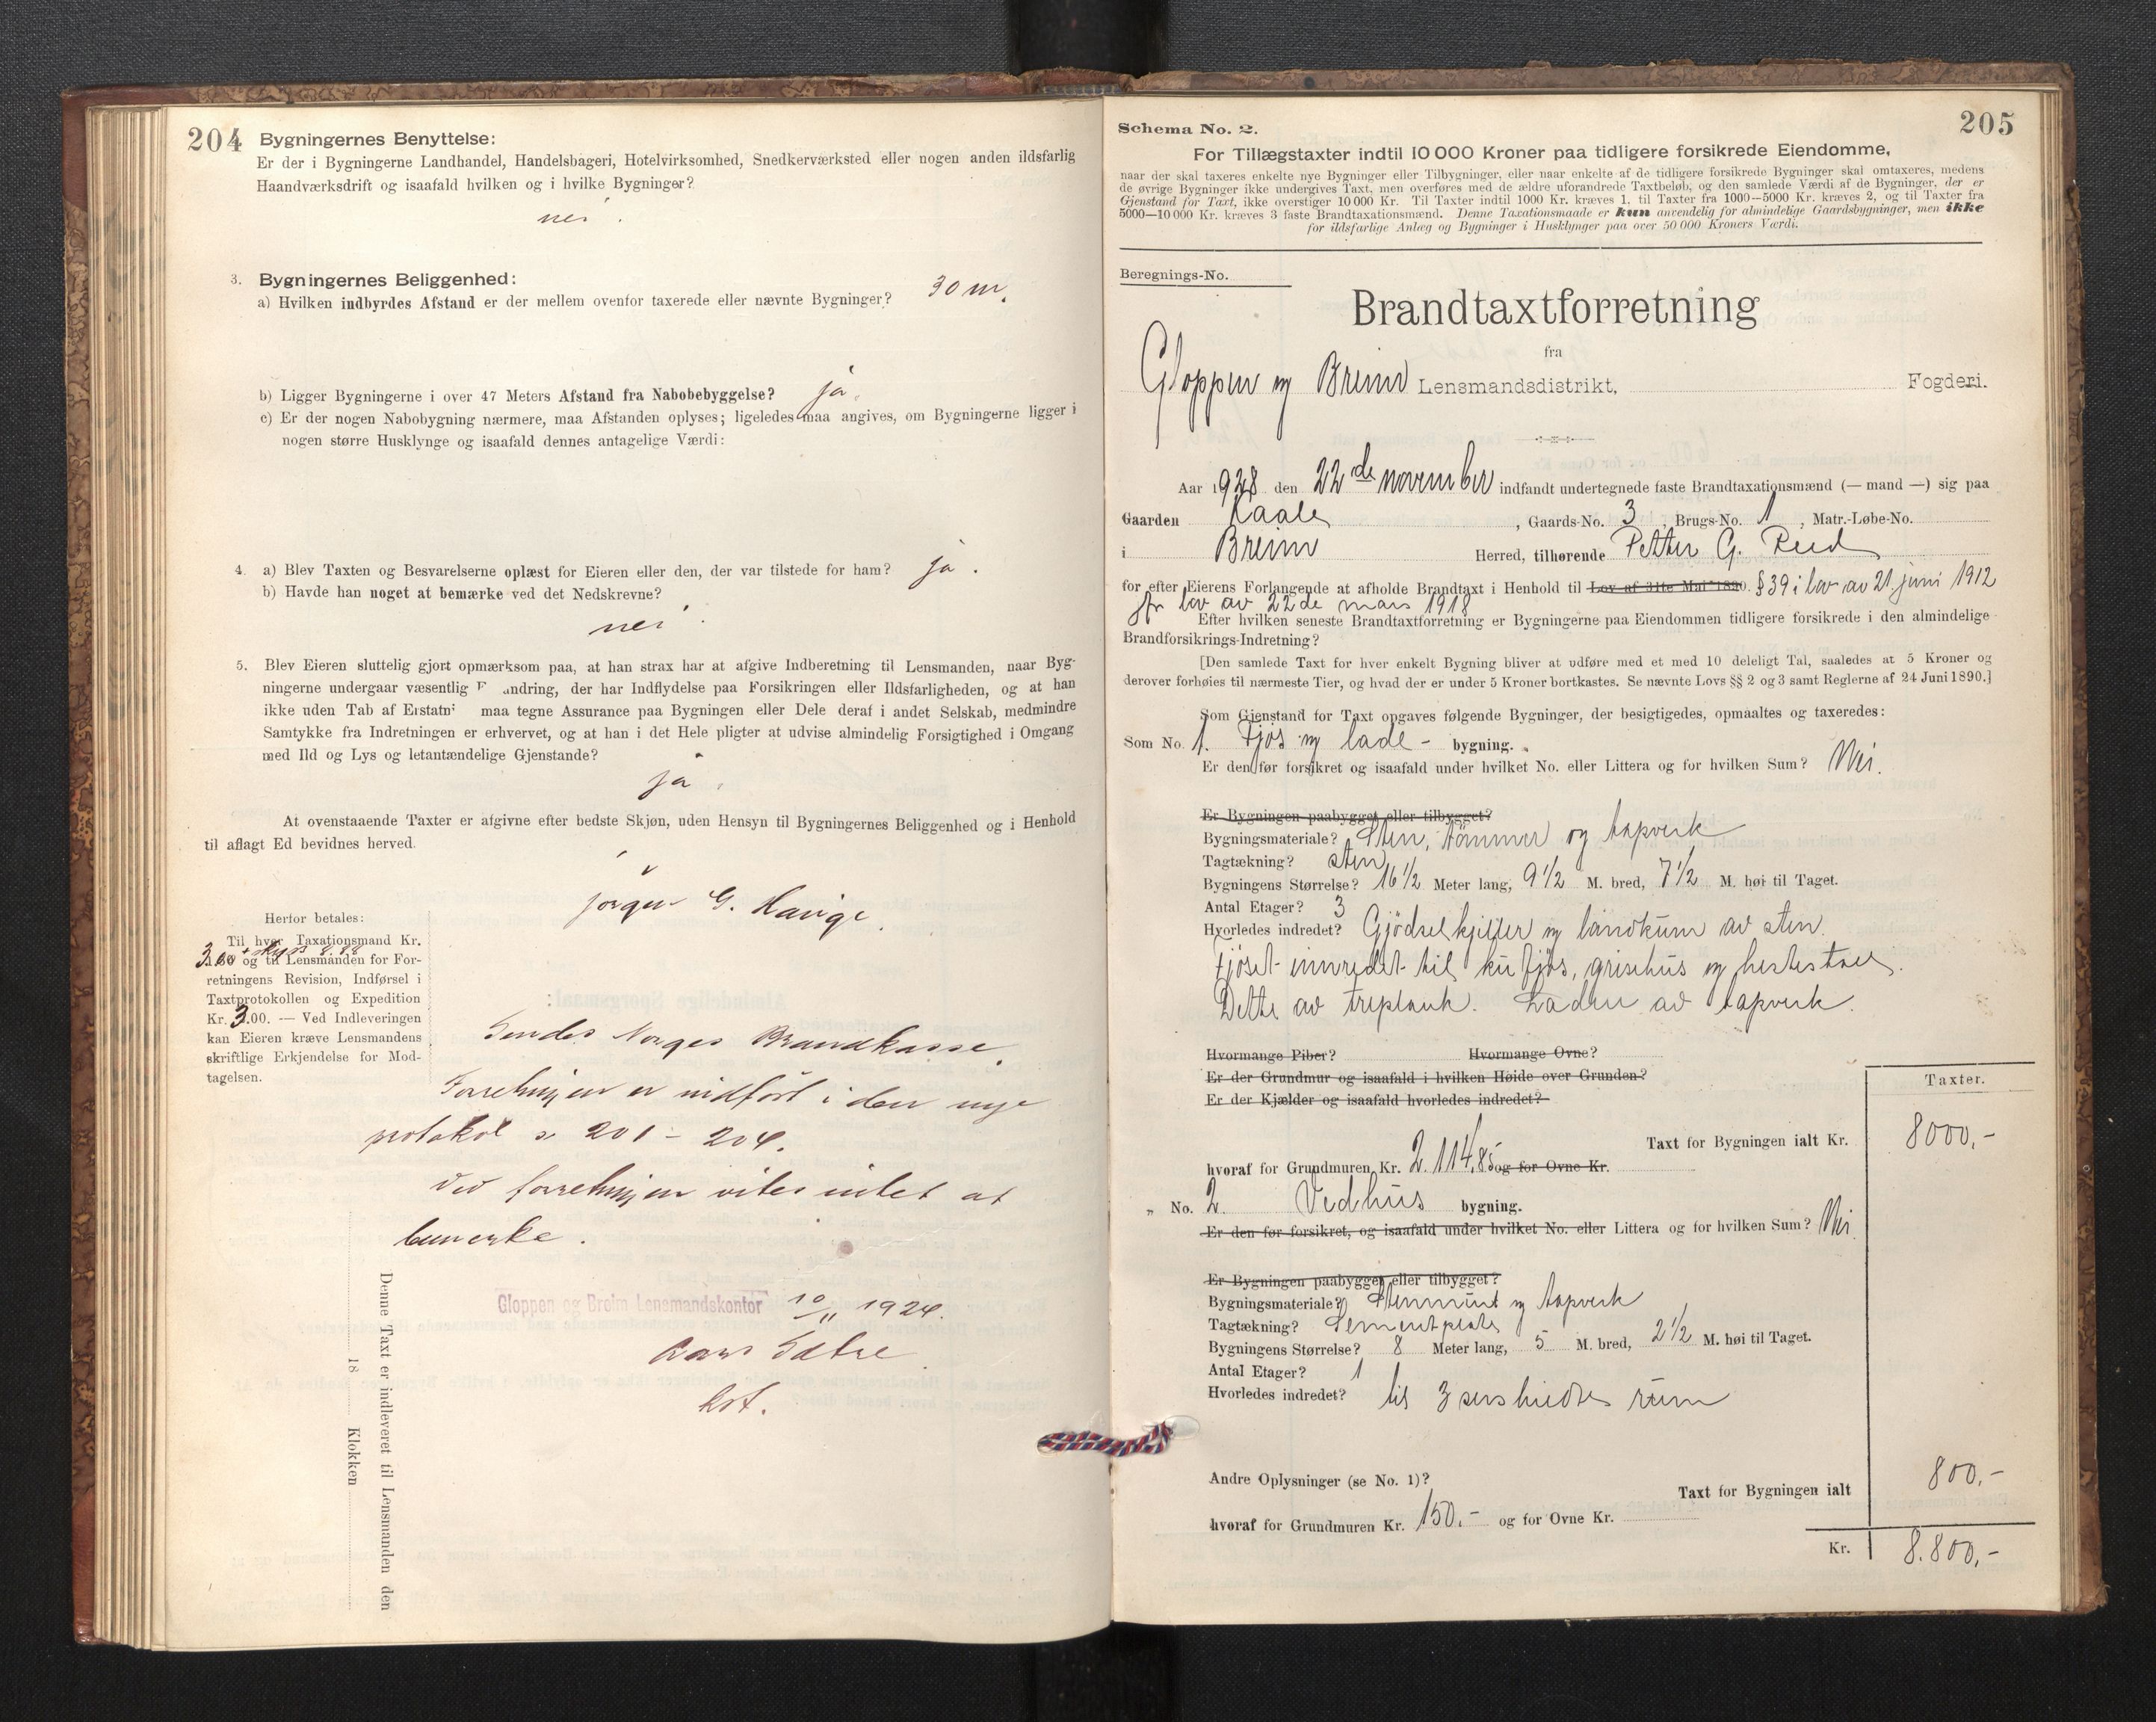 204
Bygningernes Benyttelse:
Er der i Bygningerne Landhandel, Handelsbageri, Hotelvirksomhed, Snedkerværksted eller nogen anden ildsfarlig
Haandværksdrift og isaafald hvilken og i hvilke Bygninger?
nei.
3. Bygningernes Beliggenhed:
a) Hvilken indbyrdes Afstand er der mellem ovenfor taxerede eller nævnte Bygninger? 30 m.
b) Ligger Bygningerne i over 47 Meters Afstand fra Nabobebyggelse? ja.
c) Er der nogen Nabobygning nærmere, maa Afstanden oplyses; ligeledes maa angives, om Bygningerne ligger i
nogen større Husklynge og isaafald dennes antagelige Værdi:
4. a) Blev Taxten og Besvarelserne oplæst for Eieren eller den, der var tilstede for ham? ja.
b) Havde han noget at bemærke ved det Nedskrevne?
nei.
5. Blev Eieren sluttelig gjort opmærksom paa, at han strax har at afgive Indberetning til Lensmanden, naar Byg-
ningerne undergaar væsentlig F andring, der har Indflydelse paa Forsikringen eller Ildsfarligheden, og at han
ikke uden Tab af Erstatni maa tegne Assurance paa Bygningen eller Dele deraf i andet Selskab, medmindre
Samtykke fra Indretningen er erhvervet, og at han i det Hele pligter at udvise almindelig Forsigtighed i Omgang
med Ild og Lys og letantændelige Gjenstande?
ja.
At ovenstaaende Taxter er afgivne efter bedste Skjøn, uden Hensyn til Bygningernes Beliggenhed og i Henhold
til aflagt Ed bevidnes herved.
Jørgen G. Hauge.
Herfor betales:
Til hver Taxationsmand Kr.
3.00 og til Lensmanden for For-
retningens Revision, Indførsel i
Taxtprotokollen og Expedition
Kr. 3.00. — Ved Indleveringen
kan Eieren kræve Lensmandens
skriftlige Erkjendelse for Mod-
tagelsen.
Sendes Norges Brandkasse.
Forretningen er indført i den nye
protokol s. 201 - 204.
Ved forretningen vites intet at
bemerke.
Gloppen og Breim Lensmandskontor 10/11 1924.
Lars Sætre
kst.
Denne Taxt er indleveret til Lensmanden den
18 Klokken
Schema No. 2.
205
For Tillægstaxter indtil 10 000 Kroner paa tidligere forsikrede Eiendomme,
naar der skal taxeres enkelte nye Bygninger eller Tilbygninger, eller naar enkelte af de tidligere forsikrede Bygninger skal omtaxeres, medens
de øvrige Bygninger ikke undergives Taxt, men overføres med de ældre uforandrede Taxtbeløb, og den samlede Værdi af de Bygninger, der er
Gjenstand for Taxt, ikke overstiger 10 000 Kr. Til Taxter indtil 1000 Kr. kræves 1, til Taxter fra 1000—5000 Kr. kræves 2, og til Taxter fra
5000—10 000 Kr. kræves 3 faste Brandtaxationsmænd. Denne Taxationsmaade er kun anvendelig for almindelige Gaardsbygninger, men ikke
for ildsfarlige Anlæg og Bygninger i Husklynger paa over 50 000 Kroners Værdi.
Beregnings-No.
Brandtaxtforretning
fra
Gloppen og Breim Lensmandsdistrikt, Fogderi.
Aar 1928 den 22de november indfandt undertegnede faste Brandtaxationsmænd (— mand —) sig paa
Gaarden Kaale, Gaards-No. 3, Brugs-No. 1, Matr.-Løbe-No.
i Breim Herred, tilhørende Petter G. Reed
for efter Eierens Forlangende at afholde Brandtaxt i Henhold til Lov af 31te Mai 1890. § 39 i lov av 21. juni 1912
jfr lov av 22de mars 1918
Efter hvilken seneste Brandtaxtforretning er Bygningerne paa Eiendommen tidligere forsikrede i den almindelige
Brandforsikrings-Indretning?
[Den samlede Taxt for hver enkelt Bygning bliver at udføre med et med 10 deleligt Tal, saaledes at 5 Kroner og
derover forhøies til nærmeste Tier, og hvad der er under 5 Kroner bortkastes. Se nævnte Lovs §§ 2 og 3 samt Reglerne af 24 Juni 1890.]
Som Gjenstand for Taxt opgaves følgende Bygninger, der besigtigedes, opmaaltes og taxeredes:
Som No. 1. Fjøs og lade- bygning.
Er den før forsikret og isaafald under hvilket No. eller Littera og for hvilken Sum? Nei.
Er Bygningen paabygget eller tilbygget?
Bygningsmateriale? Sten, tømmer og tapverk
Tagtækning? sten
Bygningens Størrelse? 16 1/2 Meter lang, 9 1/2 M. bred, 7 1/2 M. høi til Taget.
Antal Etager? 3
Hvorledes indredet? Gjødselkjeller og landkum av sten.
Fjøset innredet til kufjøs, grisehus og hestestall.
Dette av treplank. Laden av tapverk.
Hvormange Piber? Hvormange Ovne?
Er der Grundmur og isaafald i hvilken Høide over Grunden?
Er der Kjælder og isaafald hvorledes indredet?
Taxter.
Taxt for Bygningen ialt Kr. 8000,-
hvoraf for Grundmuren Kr. 2.114,85 og for Ovne Kr.
„ No. 2 Vedhus bygning.
Er den før forsikret, og isaafald under hvilket No. eller Littera og for hvilken Sum? Nei
Er Bygningen paabygget eller tilbygget?
Bygningsmateriale? Stenmur og tapverk
Tagtækning? Sementplater
Bygningens Størrelse? 8 Meter lang, 5 M. bred, 2 1/2 M. høi til Taget.
Antal Etager? 1
Hvorledes indredet? til 3 serskiedte rum
Andre Oplysninger (se No. 1)?
Taxt for Bygningen ialt 800,-
hvoraf for Grundmuren Kr. 150.- og for Ovne Kr.
Kr. 8.800,-